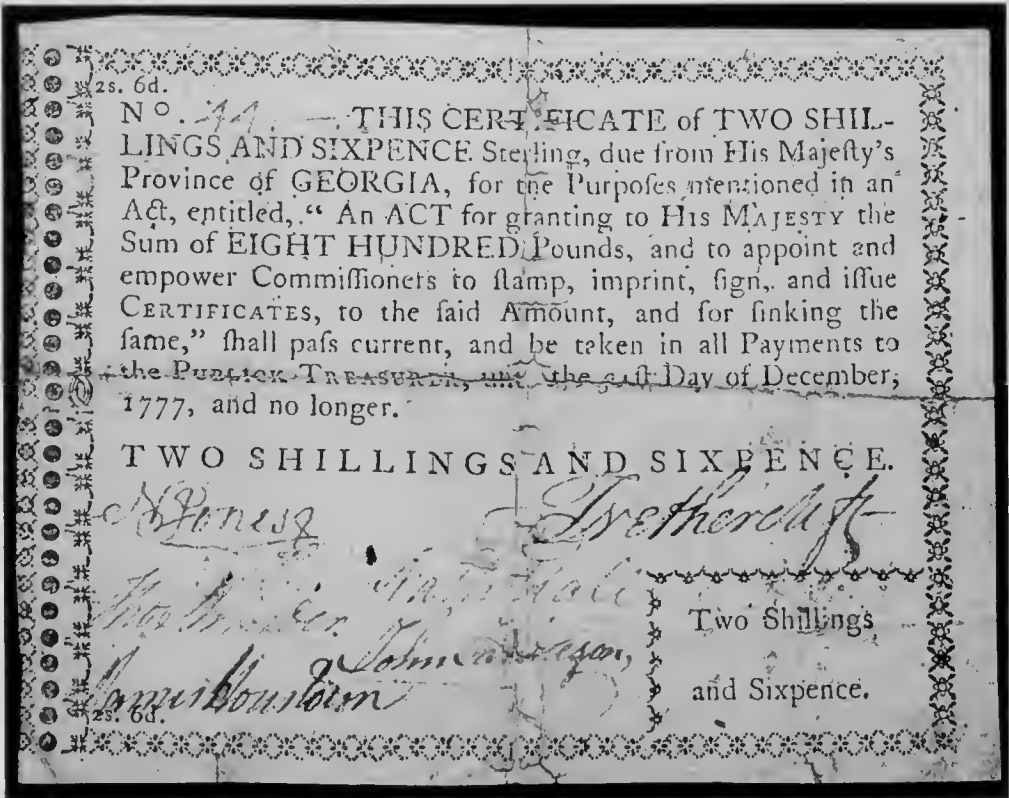 2s. 6d.
No. THIS CERTIFICATE of TWO SHIL-
LINGS AND SIXPENCE Sterling, due from His Majeſty's
Province of GEORGIA, for the Purpoſes mentioned in an
Act, entitled, “ An ACT for granting to HIS MAJESTY the
Sum of EIGHT HUNDRED Pounds, and to appoint and
empower Commiſſioners to ſtamp, imprint, ſign, and iſſue
CERTIFICATES, to the ſaid Amount, and for ſinking the
ſame,” ſhall paſs current, and be taken in all Payments to
the PUBLICK TREASURER, the Day of December,
1777, and no longer.
TWO SHILLINGS AND SIXPENCE.
NWJones
Netherclift
Two Shillings
John
and Sixpence.
James Houstoun
2s. 6d.